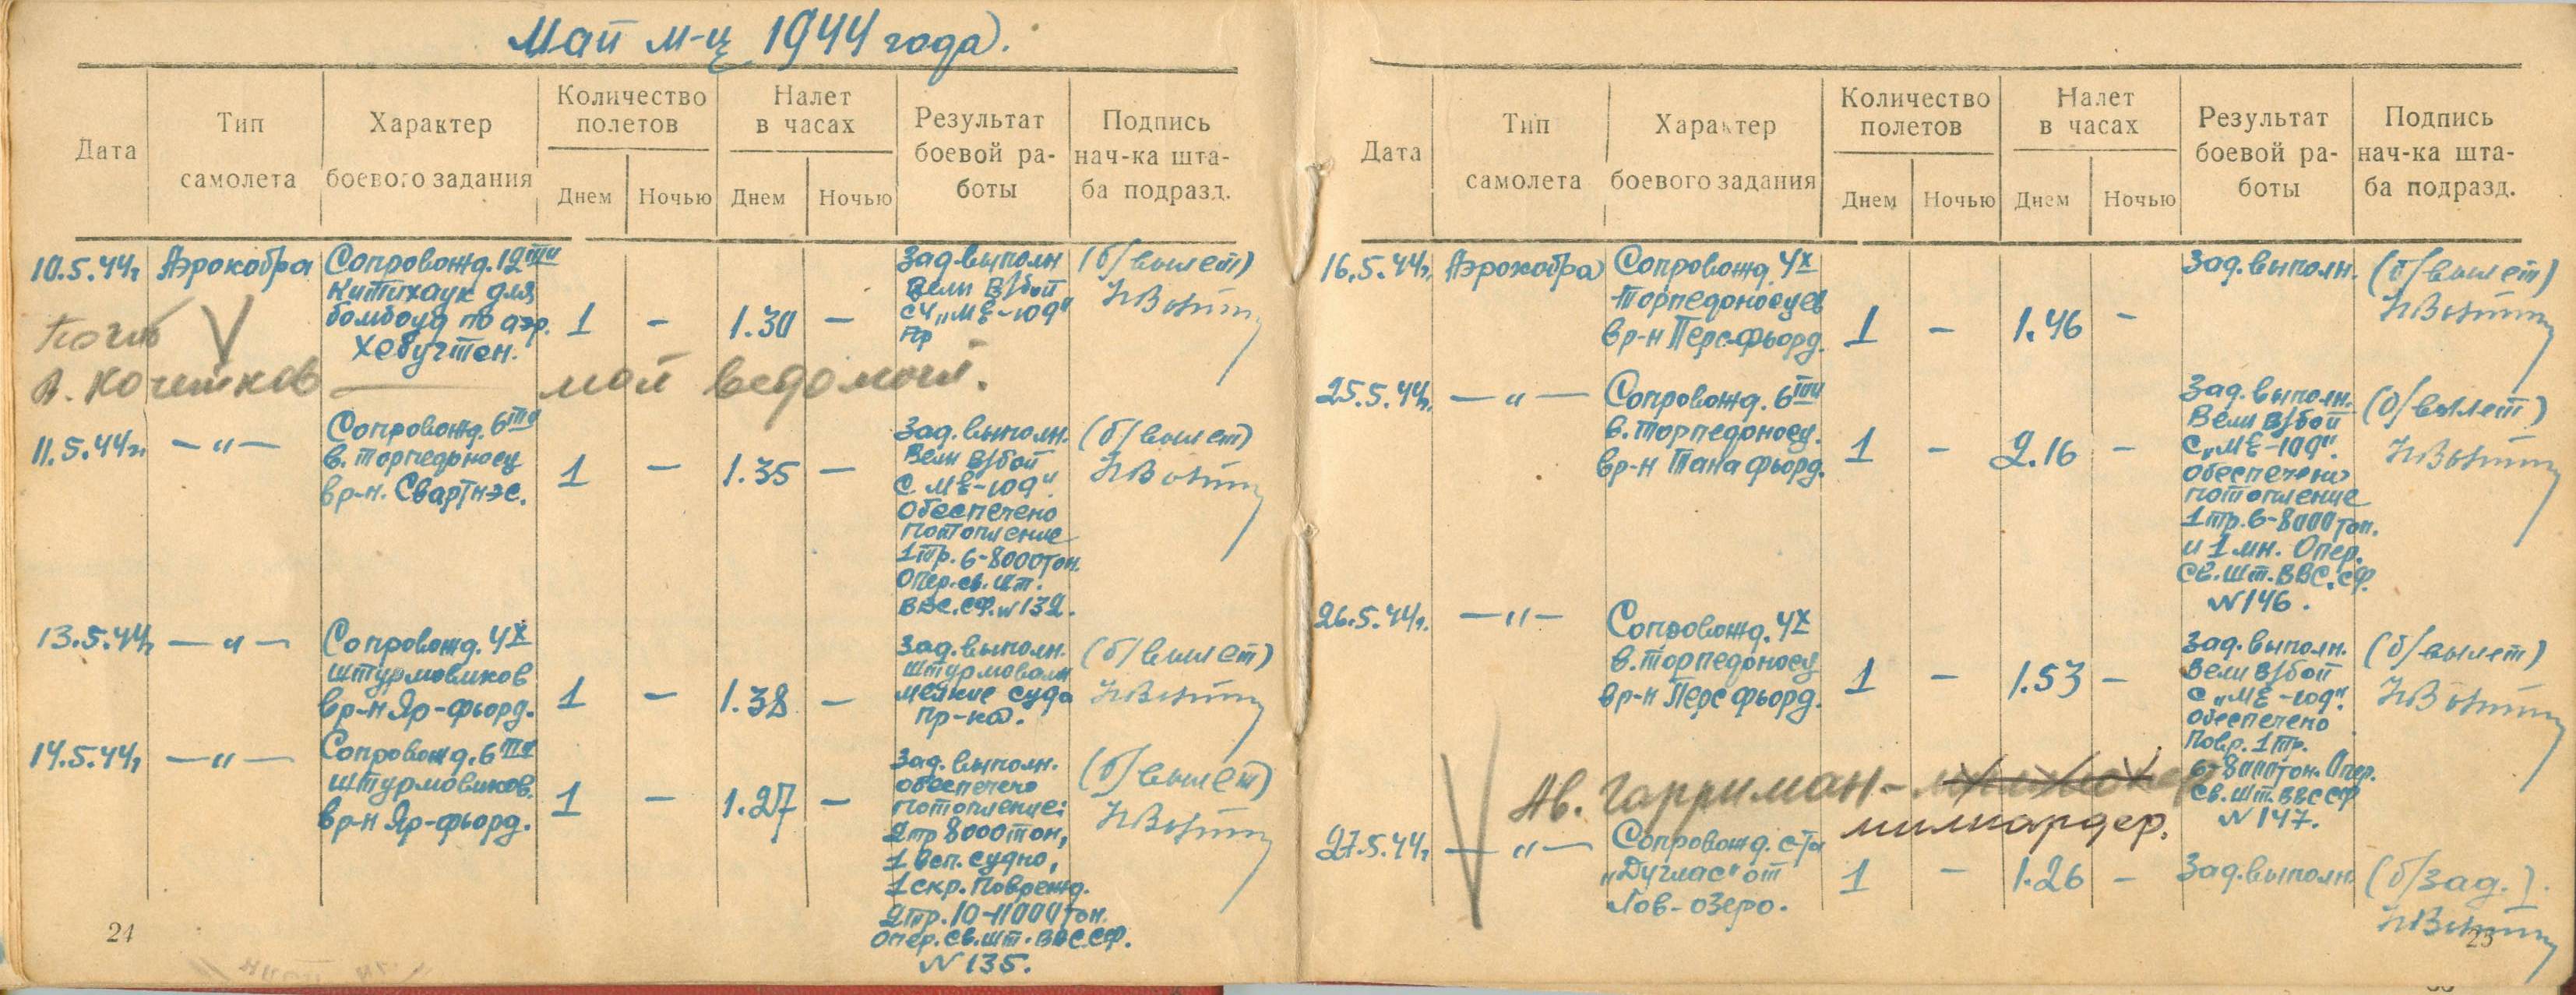 Май м-ц 1944 года.
Дата
Тип
самолета
Характер
боевого задания
Количество
полетов
Днем
Ночью
Налет
в часах
Днем
Ночью
Результат
боевой ра-
боты
Подпись
нач-ка шта-
ба подразд.
10.5.44г.
Аэрокобра
Сопровожд. 12ти
Китихаук для
бомбоуд по аэр.
Хебугтен.
1
-
1.30
-
Зад. выполн
Вели в/бой
с 4 „МЕ-109"
(б/вылет)
Погиб
А. Кочетков — мой ведомый.
11.5.44г.
— " —
Сопровожд. 6ти
в. торпедоносц
в р-н. Свартнэс.
1
-
1.35
-
Зад. выполн.
Вели в/бой
с МЕ-109".
Обеспечено
потопление
1 тр. 6-8000 тон.
Опер. св. шт.
ВВС. СФ. N 132.
(б/вылет)
13.5.44г.
— " —
Сопровожд. 4х
штурмовиков
в р-н Яр-фьорд.
1
-
1.38
-
Зад. выполн.
штурмовали
мелкие суда
пр-ка.
(б/вылет)
14.5.44г.
— " —
Сопровожд. 6ти
штурмовиков.
в р-н Яр-фьорд.
1
-
1.27
-
Зад. выполн.
обеспечено
потопление:
2 тр 8000 тон,
1 всп. судно,
1 скр. Поврежд.
2 тр. 10-11000 тон.
Опер. св. шт. ВВС. СФ.
N 135.
(б/вылет)
24
Дата
Тип
самолета
Характер
боевого задания
Количество
полетов
Днем
Ночью
Налет
в часах
Днем
Ночью
Результат
боевой ра-
боты
Подпись
нач-ка шта-
ба подразд.
16.5.44г.
Аэрокобра
Сопровожд. 4х
торпедоносцев
в р-н Перс-фьорд.
1
-
1.46
-
Зад. выполн.
(б/вылет)
25.5.44г.
— " —
Сопровожд. 6ти
в. торпедоносц.
в р-н Тана фьорд.
1
-
2.16
-
Зад. выполн.
Вели в/бой
с „МЕ-109".
Обеспечено
потопление
1 тр. 6-8000 тон.
и 1 мн. Опер.
св. шт. ВВС. СФ.
N 146.
(б/вылет)
26.5.44г.
— " —
Сопровожд. 4х
в. торпедоносц
в р-н Перс фьорд.
1
-
1.53
-
Зад. выполн.
Вели в/бой
с „МЕ-109".
Обеспечено
Повр. 1 тр.
6-8000 тон. Опер.
св. шт. ВВС СФ
N 147.
(б/вылет)
Ав. Гарриман - миллионер
миллиардер.
27.5.44г.
— " —
Сопровожд. с-та
„Дуглас" от
Лов-озеро.
1
-
1.26
-
Зад. выполн.
(б/зад.).
25